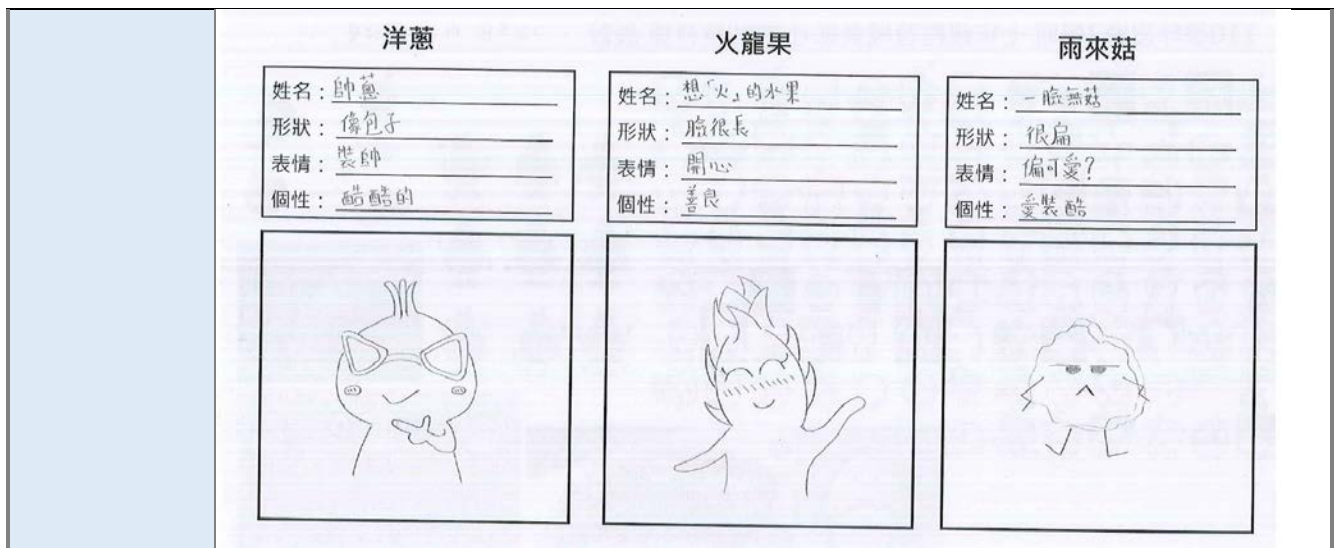 洋蔥
姓名：帥蔥
形狀：像包子
表情：裝帥
個性：酷酷的
火龍果
姓名：想「火」的水果
形狀：臉很長
表情：開心
個性：善良
雨來菇
姓名：一臉無菇
形狀：很扁
表情：偏可愛?
個性：愛裝酷